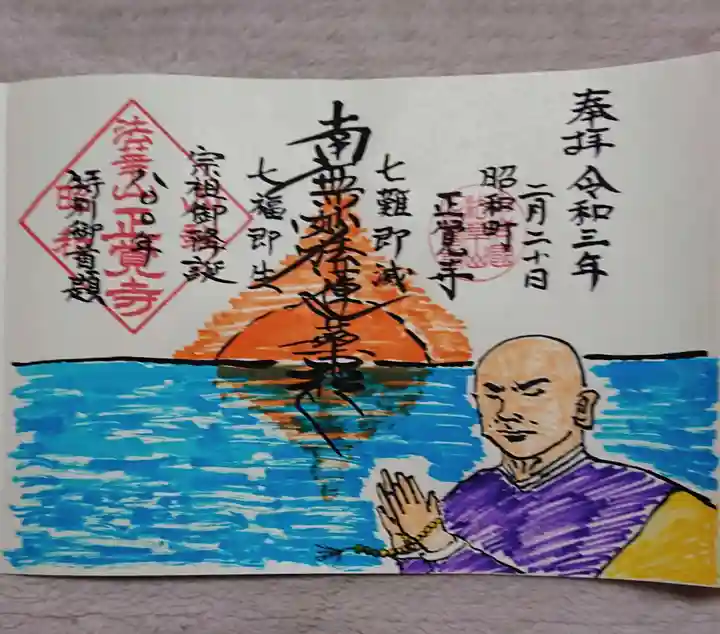 奉拝 令和三年
二月二十日
昭和町
正覚寺
七難即滅
南無妙法蓮華経
七福即生
宗祖御降誕
八〇〇年
特別御首題
法華山正覚寺